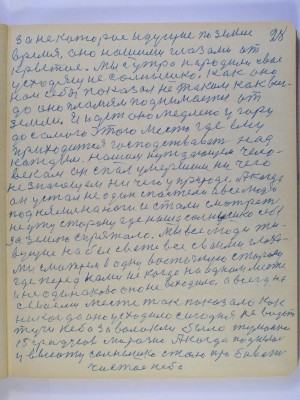 28
за некоторое идущие по земле
время, оно нашими глазами от
крытое. Мы с утра народили свое
уходящее солнышко. Как оно
нам себя показал не таким как ви
до оно пламем поднимается от
земли. И идет оно медлено у гору
до самого этого места где ему
приходится господствовать над
каждым нашим нуждающим чело-
веком он спал умершим ни чего
не знающем ни чего у походе. А когда
он устал не один спали то и все люди
подняли на ноги и стали смотреть
не у ту сторону где наше солнышко себя
за землю спрятало. Мы все люди жи-
вущие на белом свете все своими глаза-
ми смотрели в одну восточную сторону
где перед нами не когда на одном месте
и не одинаково оно не входило, а всегда на
своем месте так показало как
никогда оно уходило сегодня не видать
тучи неба заволокли было туманно
15 градусов мороза А когда поднялось
у высоту солнышко стало пробивать
чистое небо